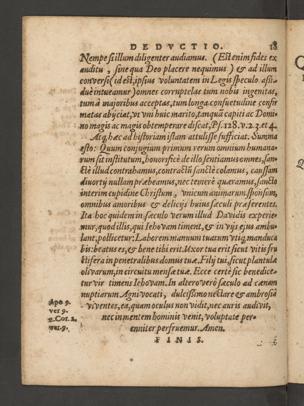 DEDVCTIO. 18
Nempe si illum diligenter audiamus. (Est enim fides ex
auditu, sine qua Deo placere nequimus) & ad illum
conuersi (id est, ipsius voluntatem in Legis speculo assi-
duè intueamur) omnes corruptelas tum nobis ingenitas,
tum à maioribus acceptas, tum longa consuetudine confir
matas abyciat, vt vni huic marito, tanquā capiti ac Domi-
no magis ac magis obtemperare discat, Ps. 128. v. 2. 3. et 4.
Atq; hæc ad historiam istam attulisse sufficiat. Summa
esto: Quum coniugium primum rerum omnium humana-
rum sit institutum, honorificè de illo sentiamus omnes, san-
ctè illud contrahamus, contractū sanctè colamus, caussam
diuorty nullam præbeamus, nec temerè quæramus, sancto
interim cupidine Christum, vnicum animarum sponsum,
omnibus amoribus & delicijs huius sæculi præferentes.
Ita hoc quidem in sæculo verum illud Dauidis experie-
mur, quod illis, qui Iehouam timent, & in vijs ejus ambu-
lant, pollicetur: Laborem manuum tuarum vtiq; manduca
bis: beatus es, & bene tibi erit. Vxor tua erit sicut vitis fru
ctifera in penetralibus domus tuæ. Filij tui, sicut plantula
oliuarum, in circuitu mensæ tuæ. Ecce certè sic benedice-
tur vir timens Iehouam. In altero verò sæculo ad cœnam
nuptiarum Agni vocati, dulcissimo nectare & ambrosia
Apo 9.
ver 9.
1. Cor. 2.
ver. 9.
viuentes, ea, quæ oculus non vidit, nec auris audiuit,
nec in mentem hominis venit, voluptate per-
enniter perfruemur. Amen.
FINIS.